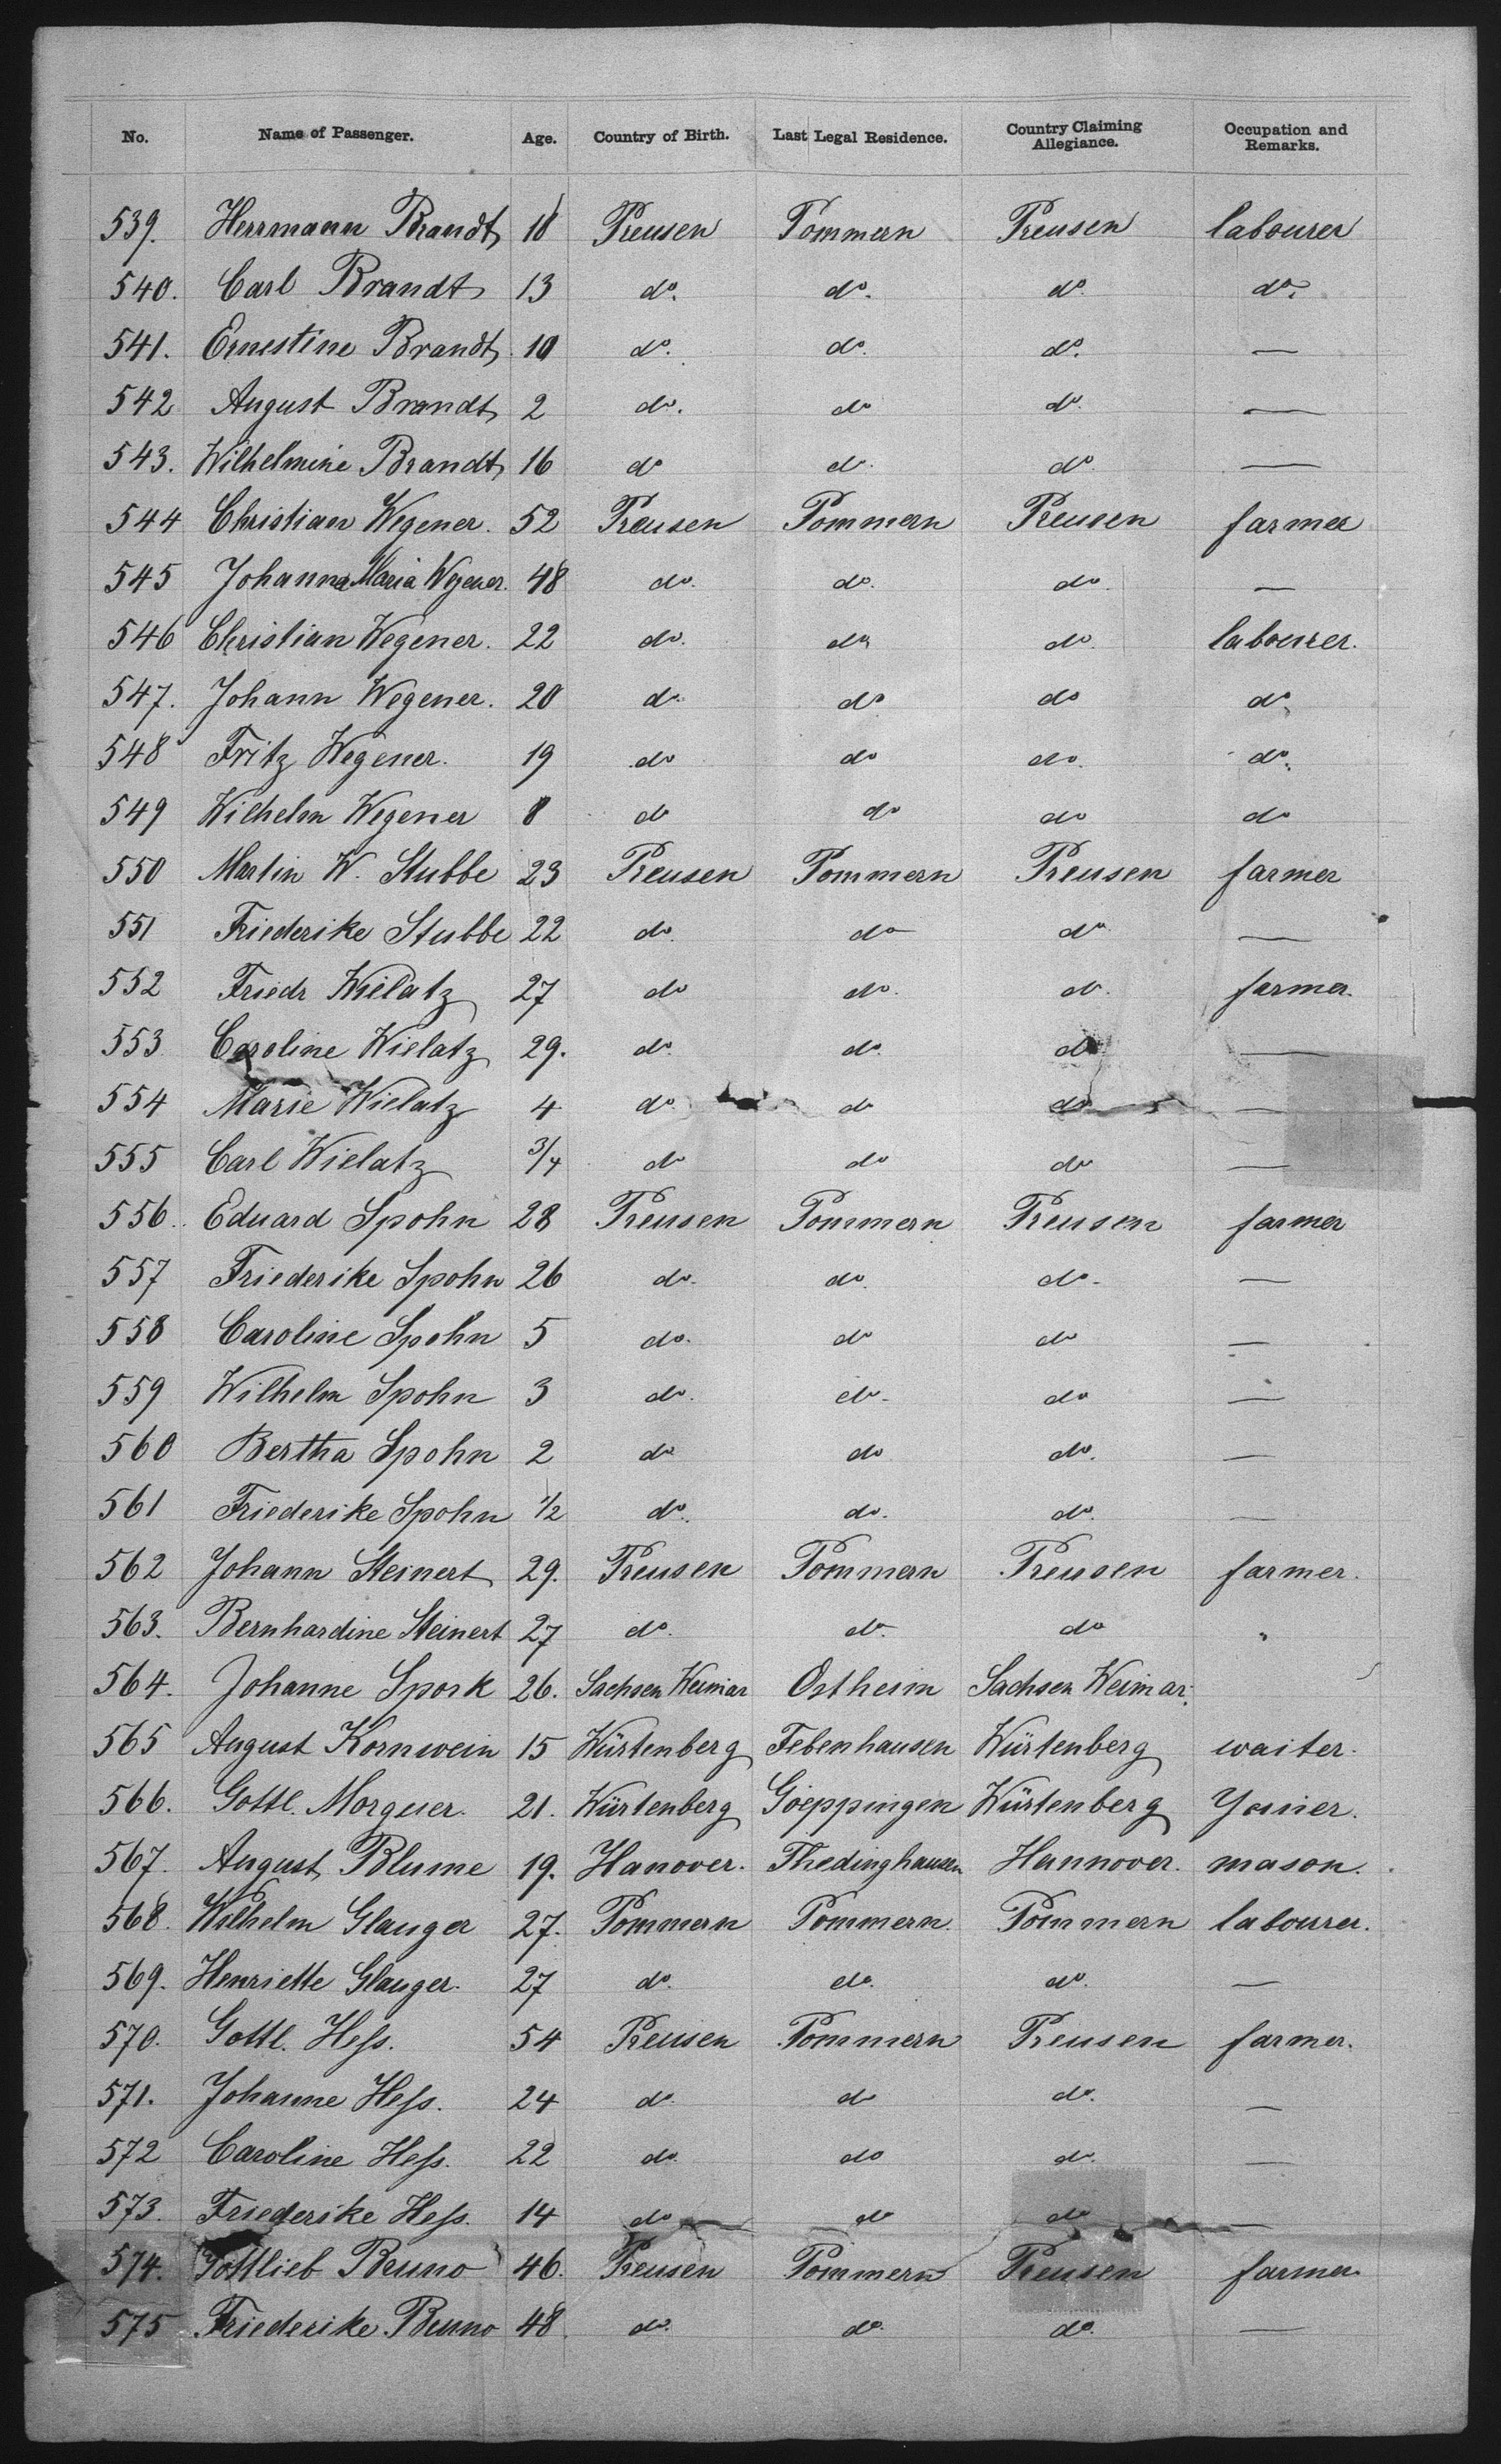 No. Name of Passenger. Age. Country of Birth. Last Legal Residence. Country Claiming Allegiance. Occupation and Remarks.
539. Herrmann Brandt 18 Preusen Pommern Preusen labourer
540. Carl Brandt 13 do. do. do. do.
541. Ernestine Brandt 10 do. do. do. —
542 August Brandt 2 do. do do. —
543. Wilhelmine Brandt 16 do do. do. —
544 Christian Wegener. 52 Preusen Pommern Preusen farmer
545 Johanna Maria Wegener. 48 do. do. do. —
546 Christian Wegener. 22 do. do do. labourer.
547. Johann Wegener. 20 do. do do do.
548 Fritz Wegener. 19 do do do. do.
549 Wilhelm Wegener 8 do do do do
550 Martin W. Stubbe 23 Preusen Pommern Preusen farmer
551 Friederike Stubbe 22 do. do do —
552 Friedr Wielatz 27 do do. do. farmer.
553 Caroline Wielatz 29. do. do. do —
554 Marie Wielatz 4 do. do do —
555 Carl Wielatz 3/4 do do do —
556. Eduard Spohn 28 Preusen Pommern Preusen farmer
557 Friederike Spohn 26 do. do. do. —
558 Caroline Spohn 5 do. do do —
559 Wilhelm Spohn 3 do. do. do —
560 Bertha Spohn 2 do do do. —
561 Friederike Spohn 1/2 do. do. do. —
562 Johann Steinert 29. Preusen Pommern Preusen farmer.
563. Bernhardine Steinert 27 do. do. do "
564. Johanne Spork 26. Sachsen Weimar Ostheim Sachsen Weimar.
565 August Kornwein 15 Würtenberg Febenhausen Würtenberg waiter.
566. Gottl. Morguer. 21. Würtenberg Goeppingen Würtenberg Yoiner.
567. August Blume 19. Hanover. Thedinghausen Hannover. mason.
568. Wilhelm Glauger 27. Pommern Pommern. Pommern labourer.
569. Henriette Glauger. 27 do. do. do. —
570. Gottl. Heſs. 54 Preusen Pommern Preusen farmer.
571. Johanne Heſs. 24 do. do do. —
572 Caroline Heſs. 22 do. do do. —
573. Friederike Heſs. 14 do do do —
574. Gottlieb Bruno 46. Preusen Pommern Preusen farmer
575 Friederike Bruno 48. do. do. do. —